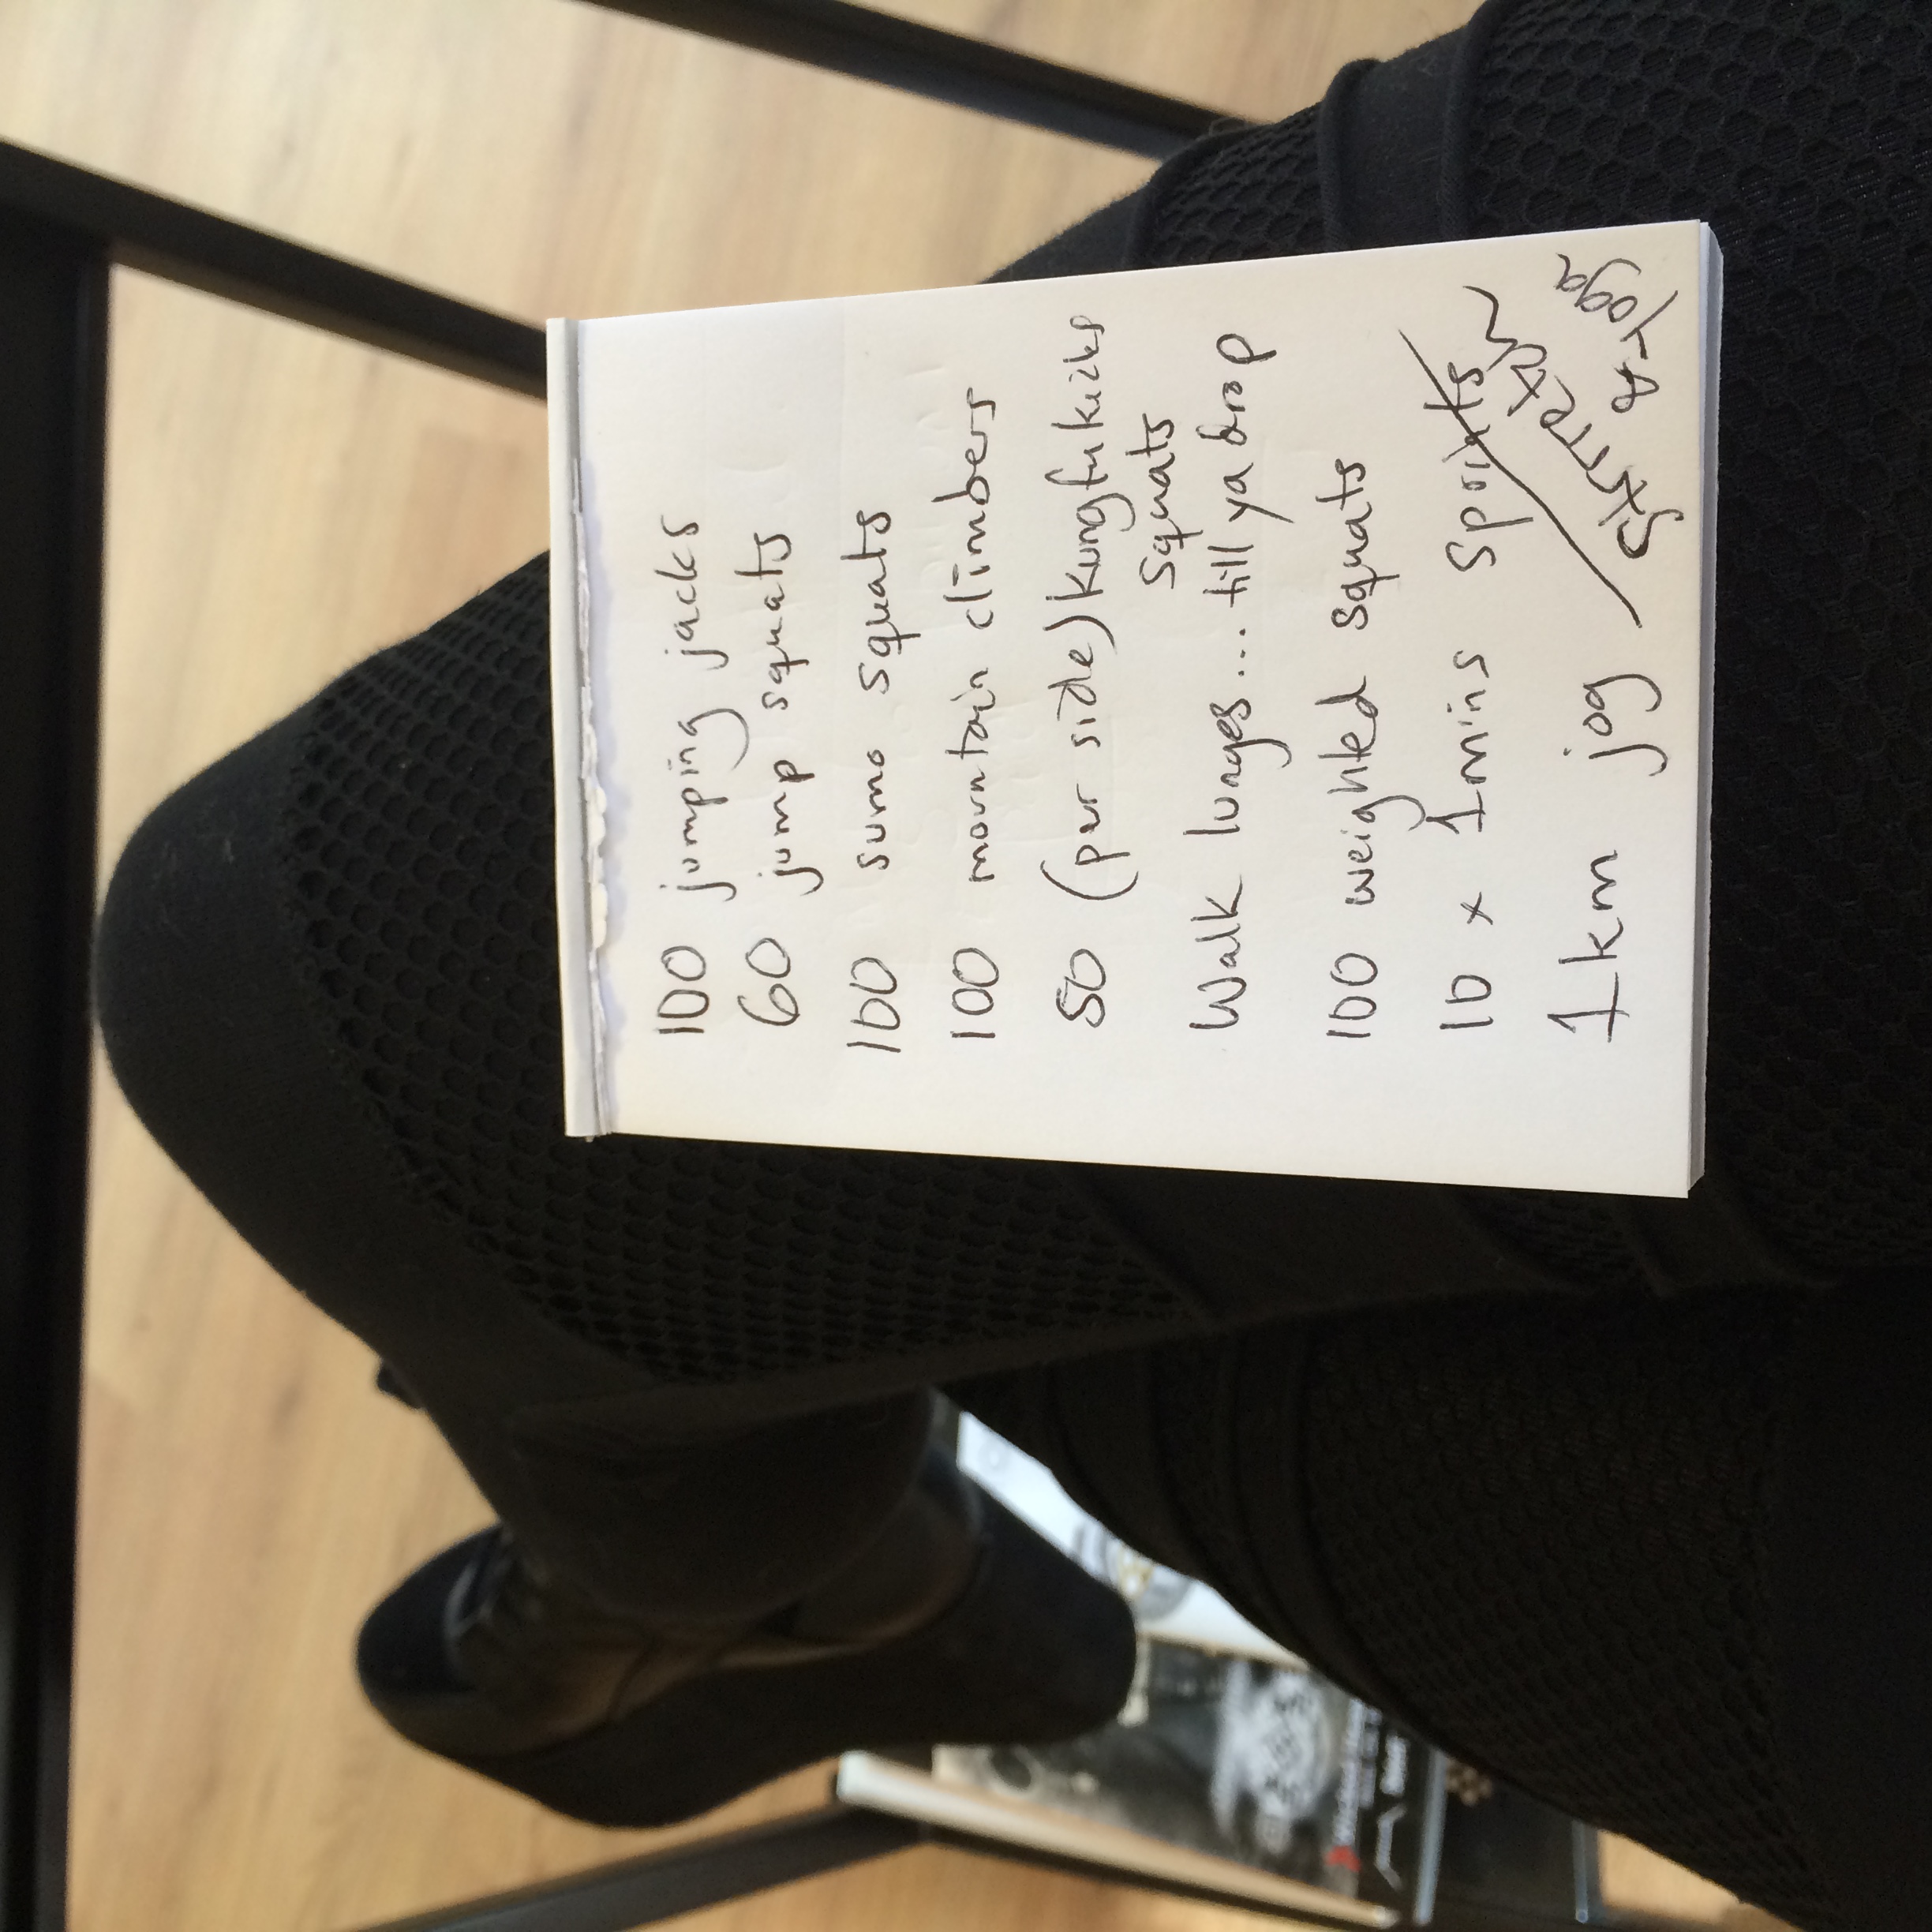 100 jumping jacks
60 jump squats
100 sumo squats
100 mountain climbers
50 (per side) kungfu kicks
squats
Walk lunges... till ya drop
100 weighted squats
10 x 1mins sprints
1km jog
stretch
& Yoga